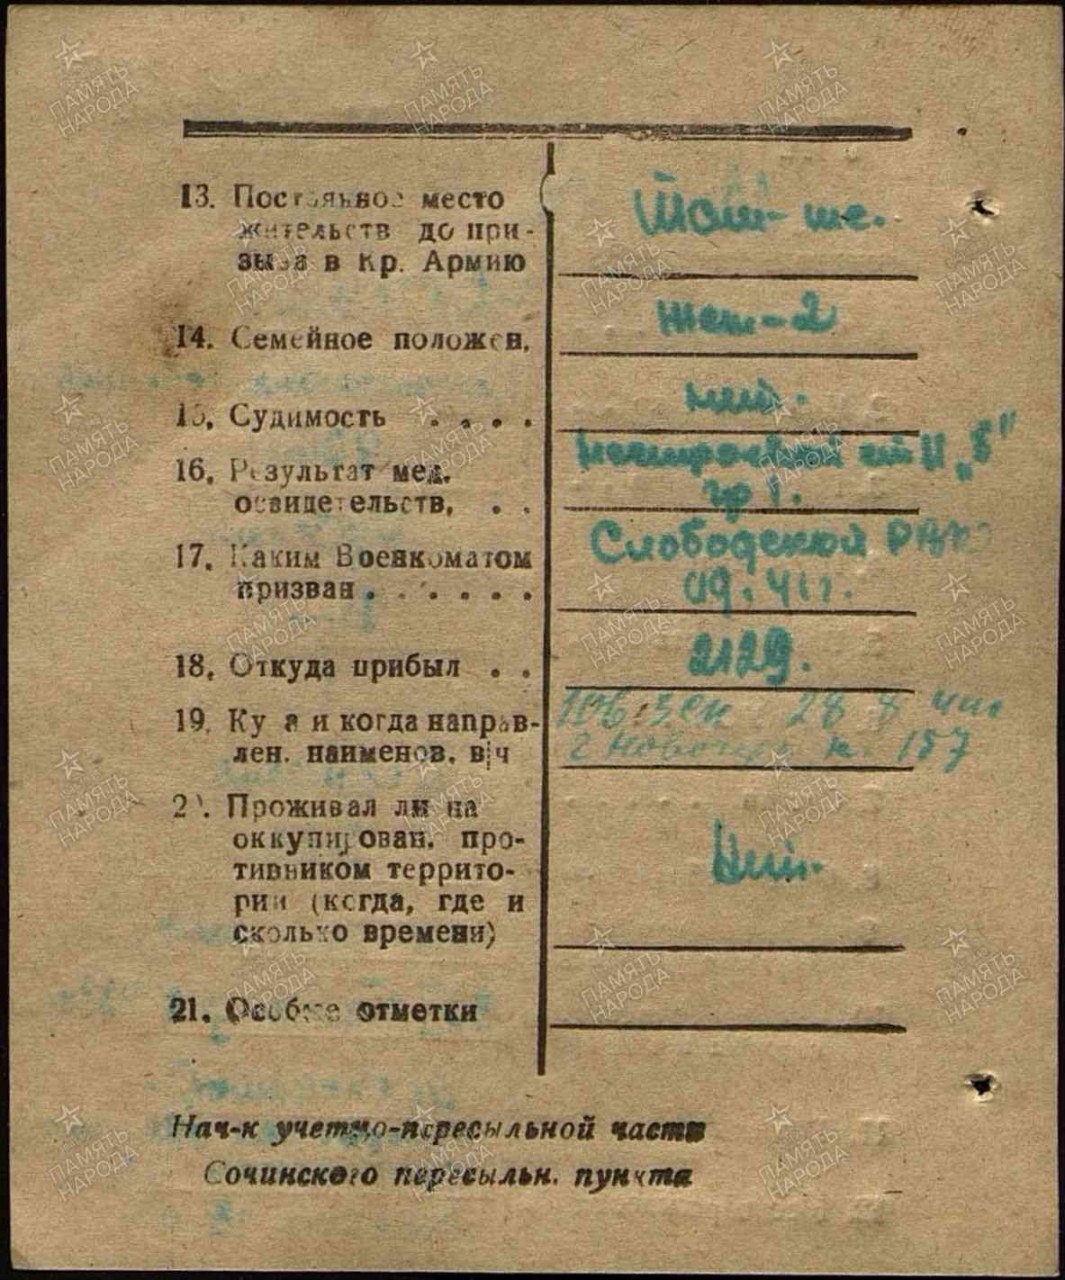 13. Постоянное место
жительств до при-
зыва в Кр. Армию
Там-же.
14. Семейное положен.
жен-2
15. Судимость . . . .
нет.
16. Результат мед.
освидетельств. . .
ст II „Б"
гр I.
17. Каким Военкоматом
призван . . . . . .
Слободской РВК
09.41г.
18. Откуда прибыл . .
2129.
19. Куда и когда направ-
лен. наименов. в/ч
28 8
157
20. Проживал ли на
оккупирован. про-
тивником террито-
рии (когда, где и
сколько времени)
Нет.
21. Особые отметки
Нач-к учетно-пересыльной части
Сочинского пересыльн. пункта
ПАМЯТЬ
НАРОДА